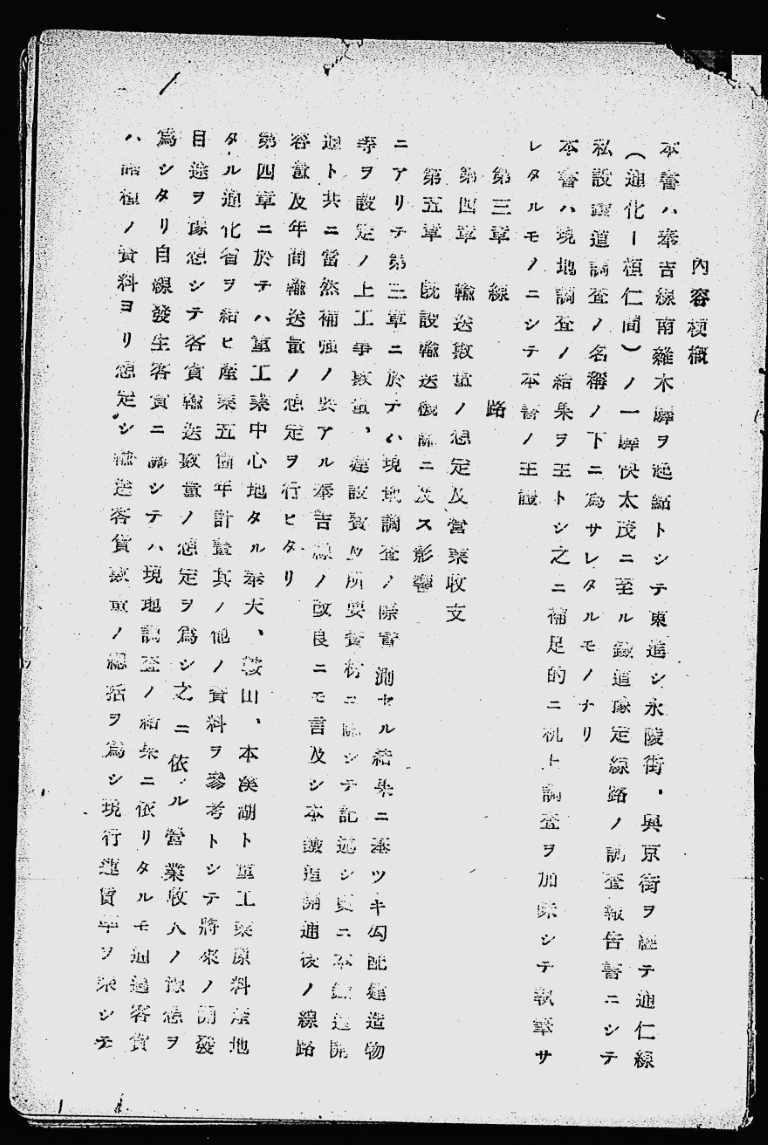 內容梗概
本書ハ奉吉線南雜木驛ヲ起點トシテ東進シ永陵街、興京街ヲ經テ通仁線
(通化ー桓仁間)ノ一驛快太茂ニ至ル鐵道豫定線路ノ調査報告書ニシテ
私設鐵道調査ノ名稱ノ下ニ爲サレタルモノナリ
本書ハ現地調査ノ結果ヲ主トシ之ニ補足的ニ机上調査ヲ加味シテ執筆サ
レタルモノニシテ本書ノ主
第三章 線 路
第四章 輸送數量ノ想定及營業收支
第五章 既設輸送機關ニ及ス影響
ニアリテ第三章ニ於テハ現地調査ノ際實測セル結果ニ基ツキ勾配建造物
等ヲ設定ノ上工事數量、建設費及所要資材ニ關シテ記述シ更ニ本鐵道開
通ト共ニ當然補強ノ要アル奉吉線ノ改良ニモ言及シ本鐵道開通後ノ線路
容量及年間輸送量ノ想定ヲ行ヒタリ
第四章ニ於テハ重工業中心地タル奉天、鞍山、本溪湖ト重工業原料產地
タル通化省ヲ結ヒ產業五箇年計畫其ノ他ノ資料ヲ參考トシテ將來ノ開發
目途ヲ豫想シテ客貨輸送數量ノ想定ヲ爲シ之ニ依ル營業收入ノ豫想ヲ
爲シタリ自線發生客貨ニ關シテハ現地調査ノ結果ニ依リタルモ通過客貨
ハ ノ資料ヨリ想定シ輸送客貨數量ノ總括ヲ爲シ現行運賃率ヲ乘シテ
1